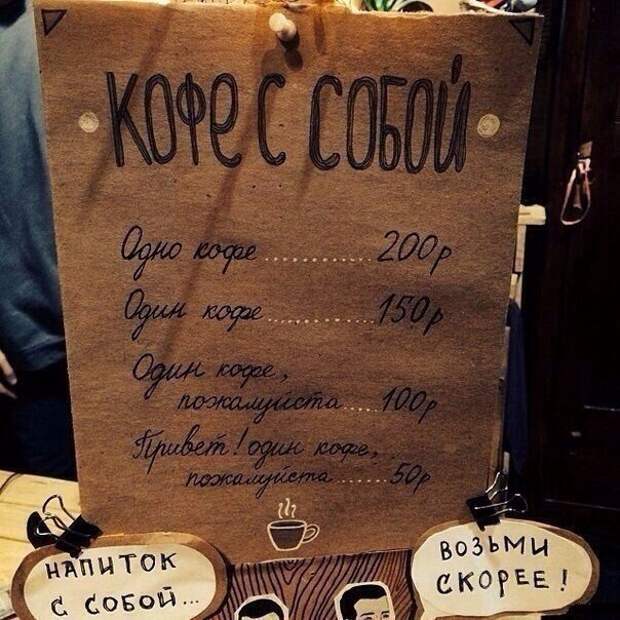 КОФЕ С СОБОЙ
Одно кофе ............ 200р
Один кофе ............ 150р
Один кофе,
пожалуйста .... 100р
Привет! один кофе,
пожалуйста ...... 50р
НАПИТОК
С СОБОЙ...
ВОЗЬМИ
СКОРЕЕ!